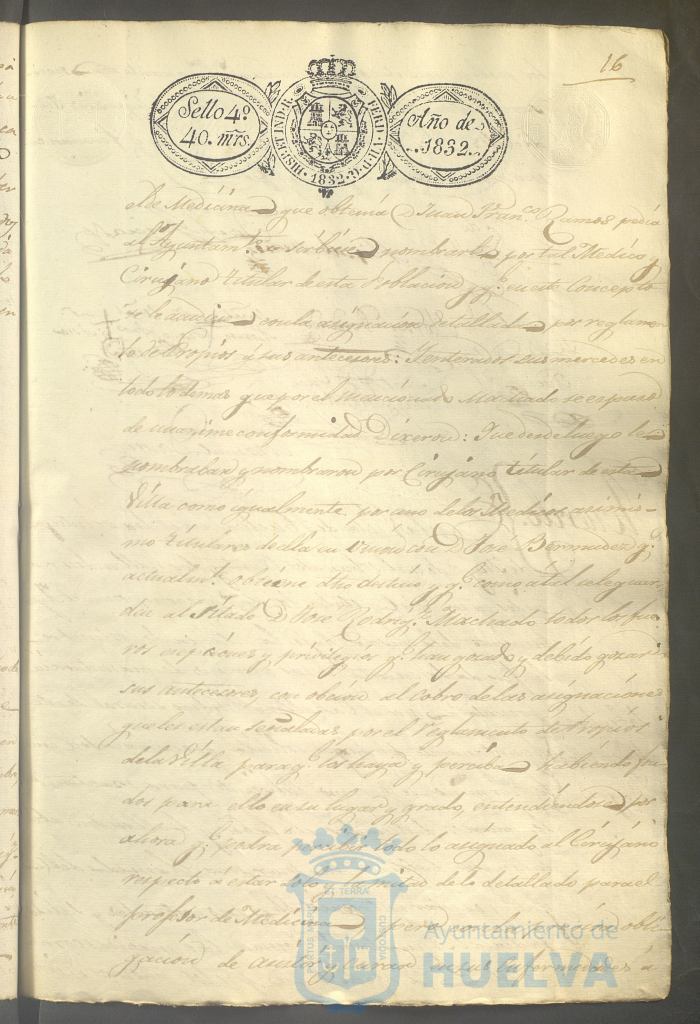 16
Sello 4º
40. mrs.
HISP. ET IND. R. FERD. VII. D. G. 1832.
Año de
1832.
de Medicina que obtenia D. Juan Franco Ramos pedia
al Ayuntamto se sirbiese nombrarle por tal Medico y
Cirujano titular de esta Poblacion y q. en este concepto
se le acudiese con la asignacion detallada por reglamen
to de Propios á sus antecesores: Y enterados sus mercedes en
todo lo demas que por el nominado Machado se espuso
de unanime conformidad Dixeron: Que desde luego le
nombraban y nombraron por Cirujano titular de esta
Villa como igualmente por uno de los Medicos asimis-
mo titulares de ella en union con D. José Bermudez q.
actualmte obtiene dho destino y q. como a tal se le guar
den al citado D. José Rodrigz Machado todos los fue
ros esepciones y privilegios q. han gozado y debido gozar
sus antecesores, con obcion al cobro de las asignaciones
que les estan señaladas por el Reglamento de Propios
de la Villa para q. las haya y perciba habiendo fon
dos para ello en su lugar y grado, entendiendose por
ahora q. podrá percibir todo lo asignado al Cirujano
respecto á estar solo y la mitad de lo detallado para el
profesor de Medicina pero con la obli
gacion de asistir y curar en sus enfermedades á
PORTUS MARIS ET TERRAE CUSTODIA
Ayuntamiento de
HUELVA